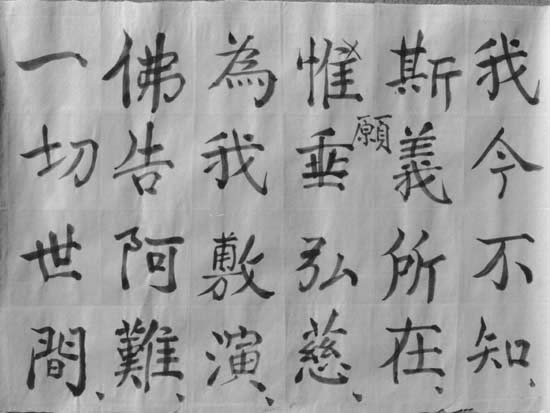 我今不知、
斯義所在、
惟願垂弘慈、
為我敷演、
佛告阿難、
一切世間、